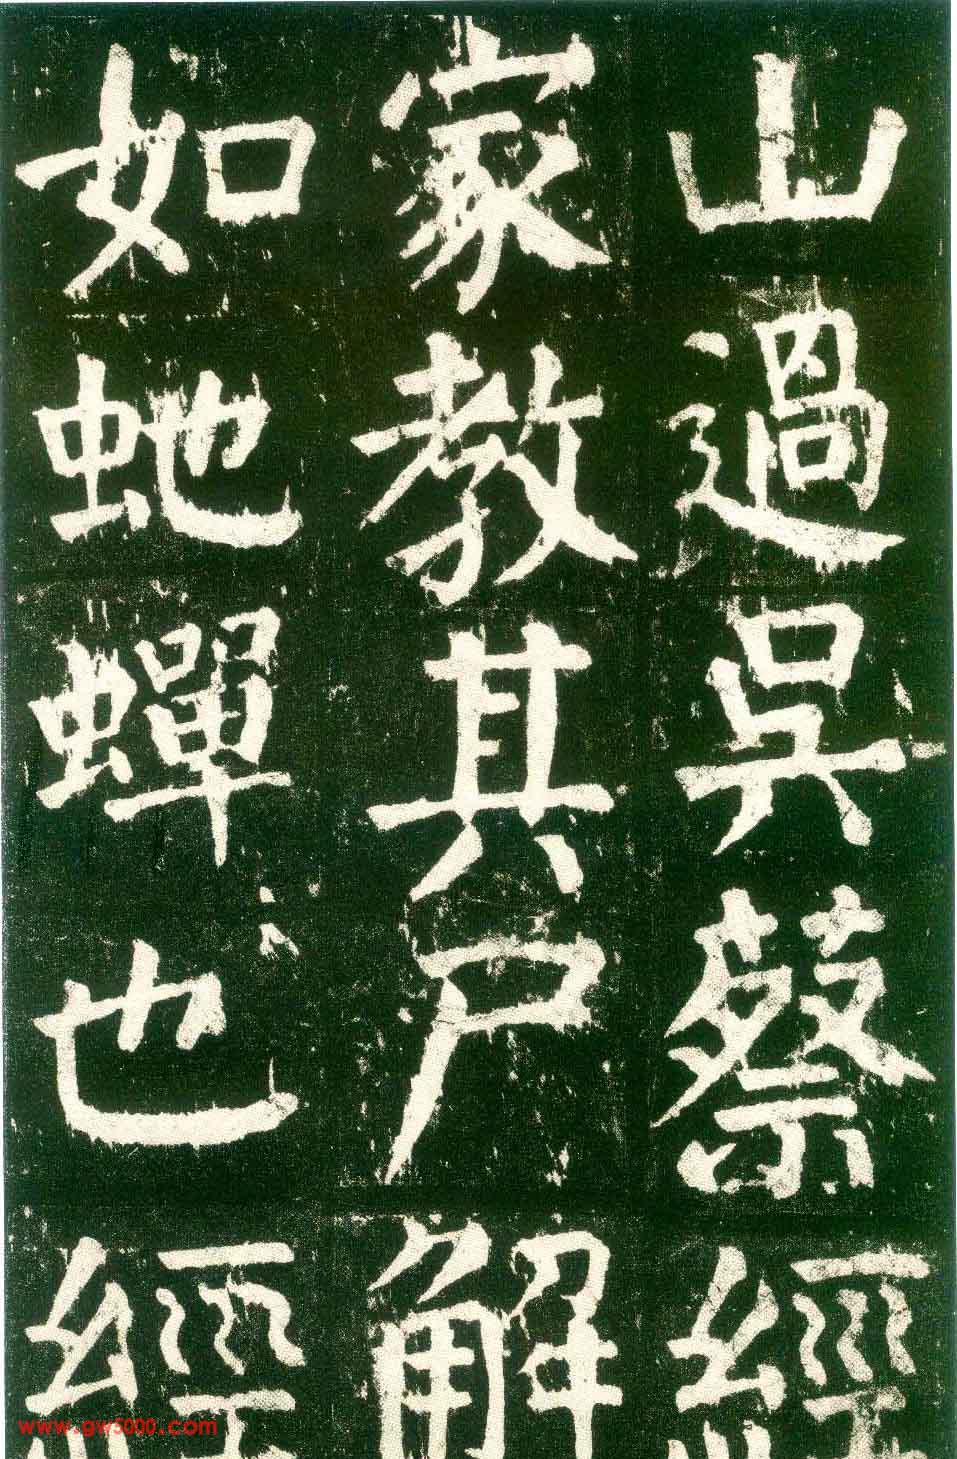 山過吳蔡經
家教其尸解
如虵蟬也經
www.gw5000.com